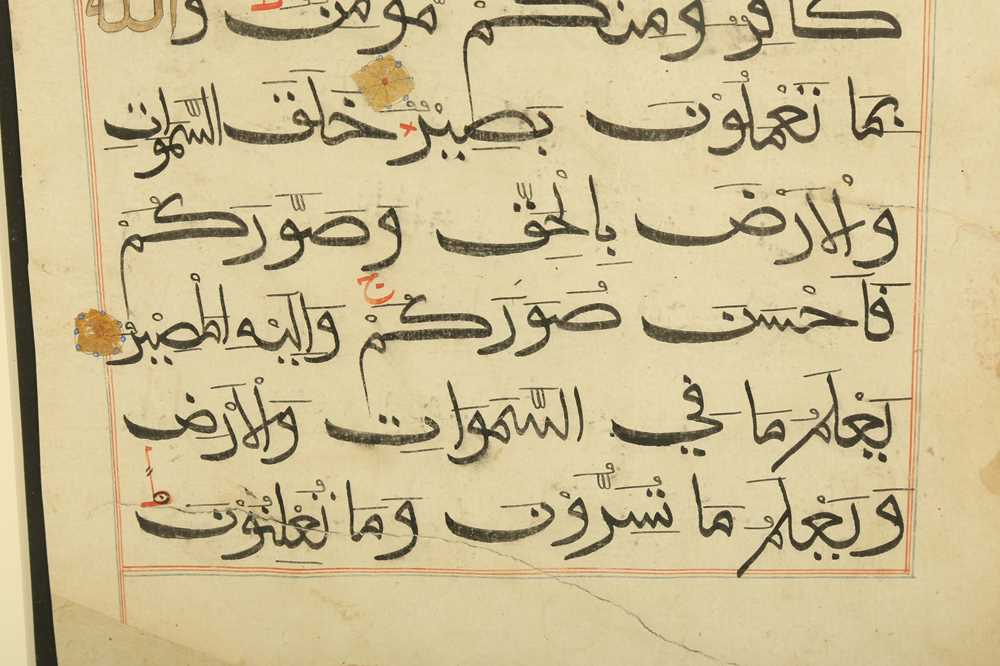 كَافِرٌ وَمِنْكُمْ مُؤْمِنٌ ط وَاللّٰهُ
بِمَا تَعْمَلُوْنَ بَصِيْرٌ خَلَقَ السَّمٰوَاتِ
وَالْاَرْضَ بِالْحَقِّ وَصَوَّرَكُمْ
فَاَحْسَنَ صُوَرَكُمْ ج وَاِلَيْهِ الْمَصِيْرُ
يَعْلَمُ مَا فِي السَّمٰوَاتِ وَالْاَرْضِ
وَيَعْلَمُ مَا تُسِرُّوْنَ وَمَا تُعْلِنُوْنَ ط